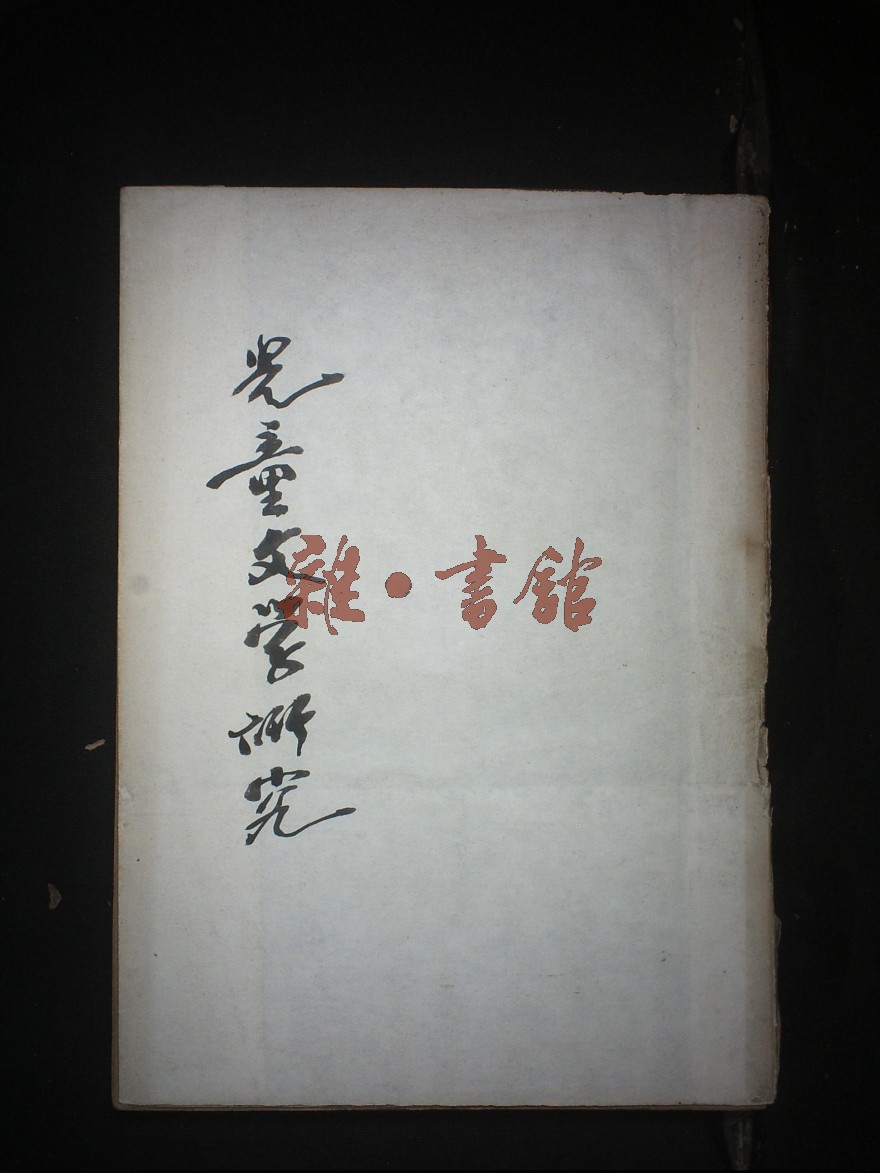 兒童文学研究
雜·書館